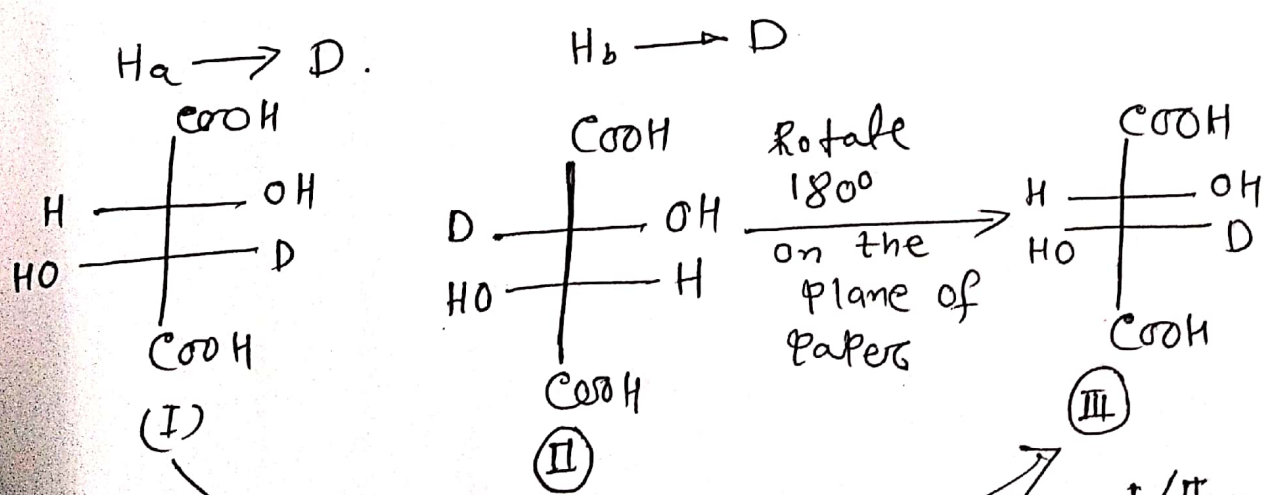 Ha → D.
Hb → D
COOH
H OH
HO D
COOH
(I)
COOH
D OH
HO H
COOH
II
Rotate
180°
on the
plane of
Paper
COOH
H OH
HO D
COOH
III